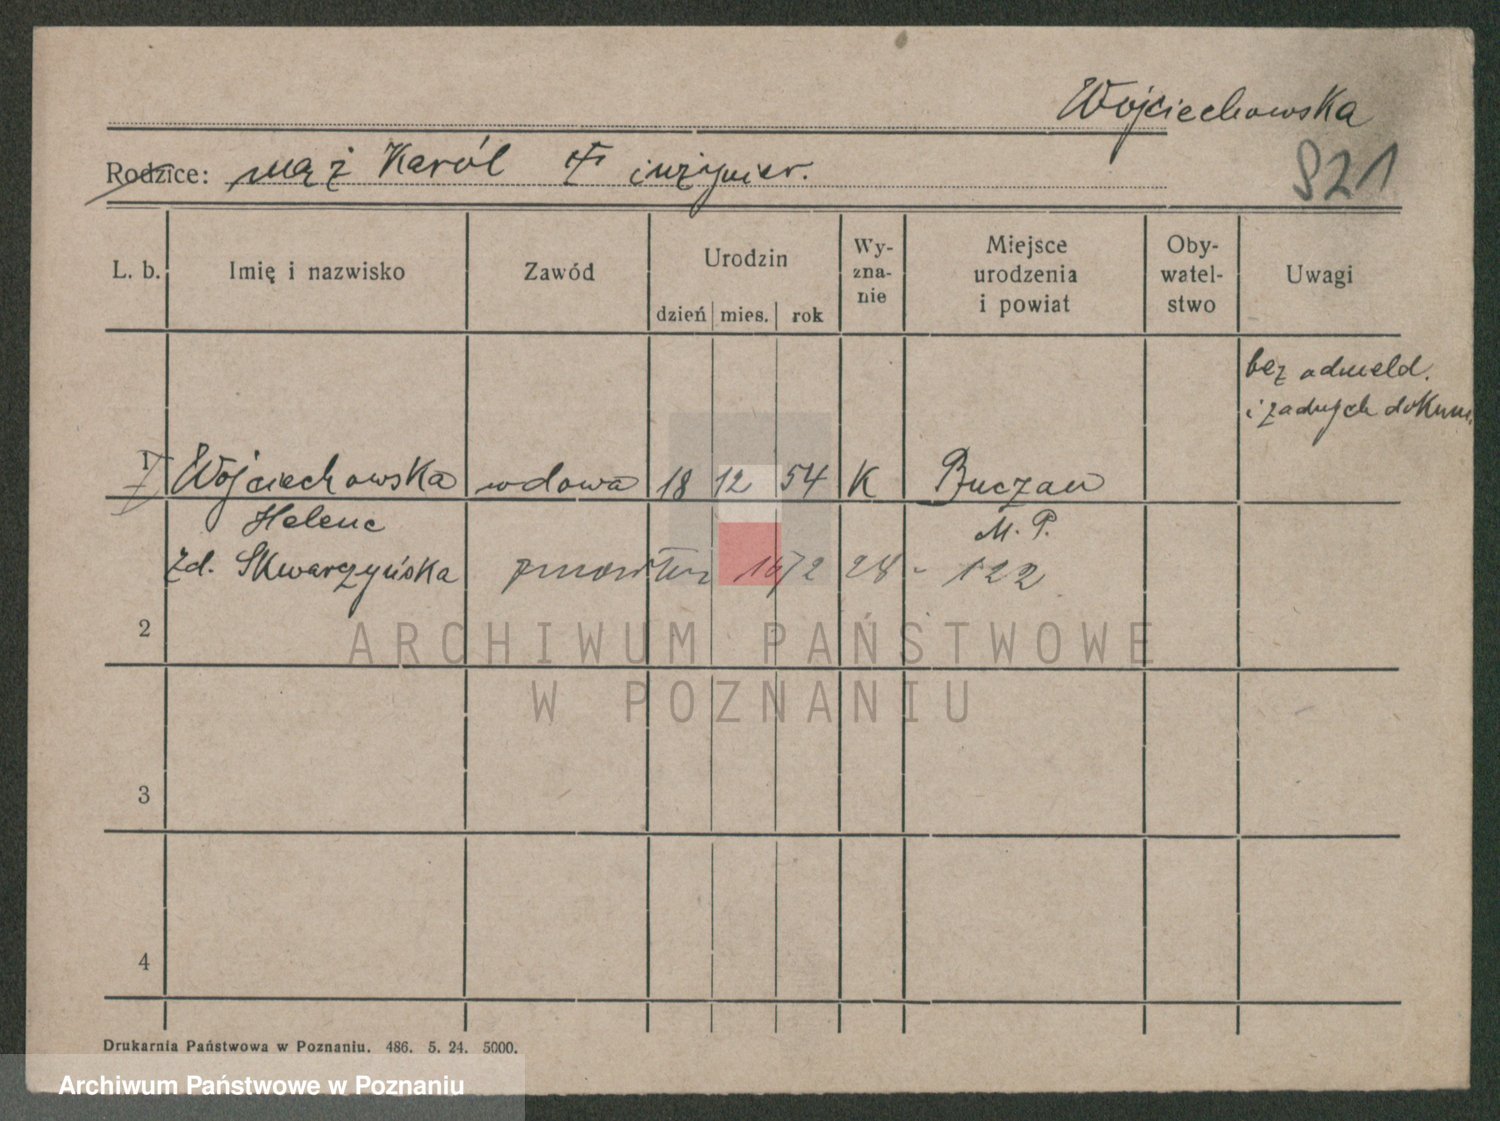 Wojciechowska
Rodzice: mąż Karól inżynier.
821
L. b. Imię i nazwisko Zawód Urodzin dzień mies. rok Wy-zna-nie Miejsce urodzenia i powiat Oby-watel-stwo Uwagi
bez odmeld.
i żadnych dokum.
1 Wojciechowska wdowa 18 12 54 K Buczan
Helene M. P.
zd. Skwarzyńska 28 - 122
2
ARCHIWUM PAŃSTWOWE
W POZNANIU
3
4
Drukarnia Państwowa w Poznaniu. 486. 5. 24. 5000.
Archiwum Państwowe w Poznaniu